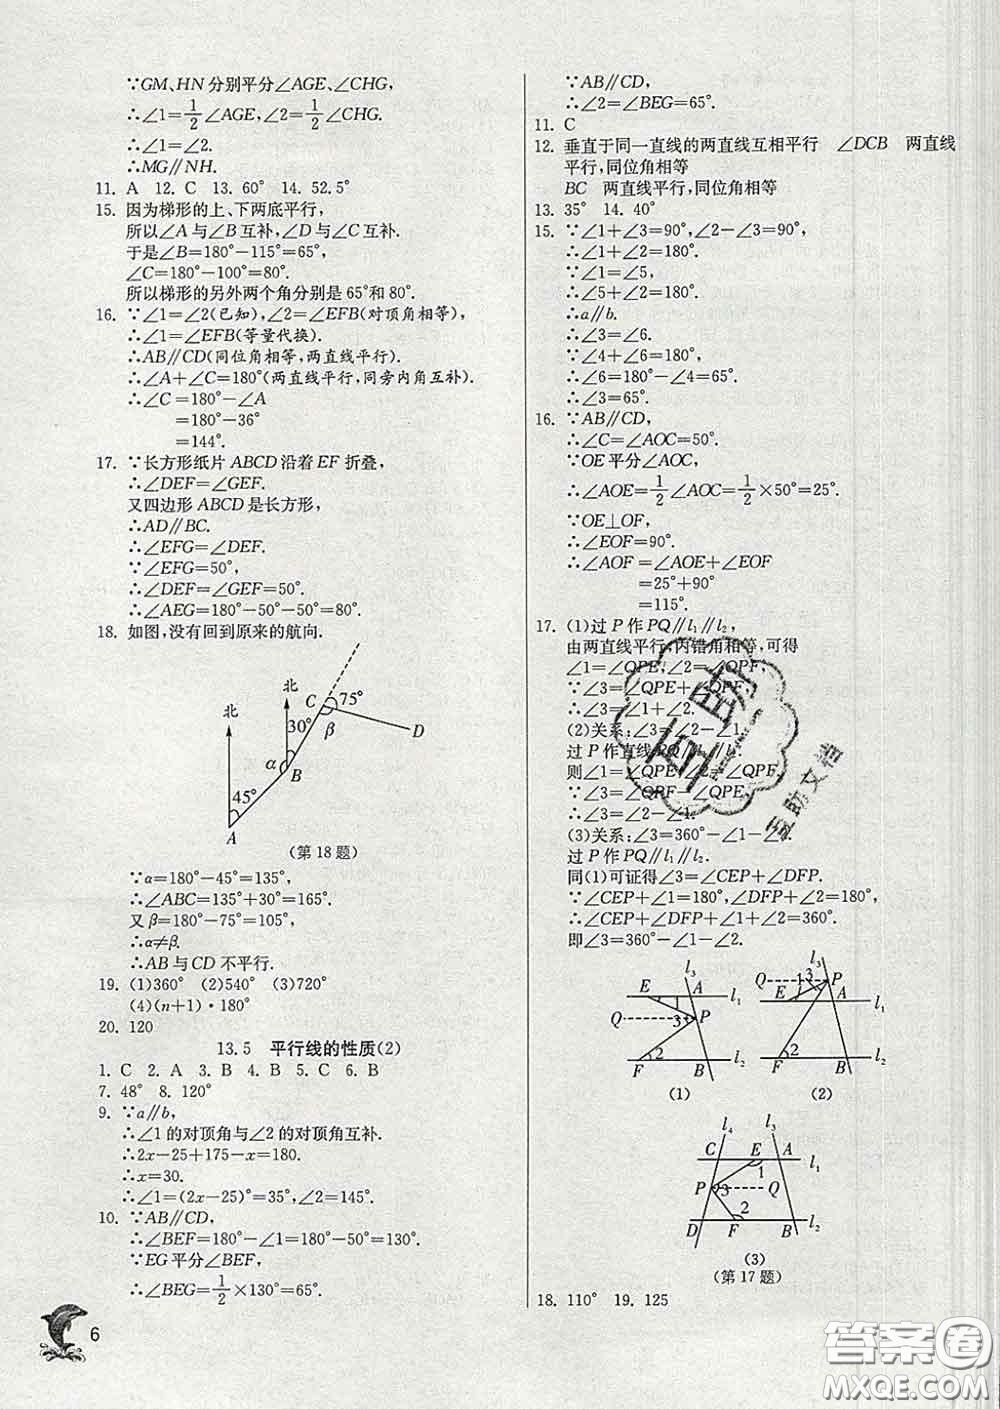 ∵GM、HN分别平分∠AGE、∠CHG,
∴∠1=1/2∠AGE,∠2=1/2∠CHG.
∴∠1=∠2.
∴MG∥NH.
11. A 12. C 13. 60° 14. 52.5°
15. 因为梯形的上、下两底平行,
所以∠A与∠B互补,∠D与∠C互补.
于是∠B=180°-115°=65°,
∠C=180°-100°=80°.
所以梯形的另外两个角分别是65°和80°.
16. ∵∠1=∠2(已知),∠2=∠EFB(对顶角相等),
∴∠1=∠EFB(等量代换).
∴AB∥CD(同位角相等,两直线平行).
∴∠A+∠C=180°(两直线平行,同旁内角互补).
∴∠C=180°-∠A
=180°-36°
=144°.
17. ∵长方形纸片ABCD沿着EF折叠,
∴∠DEF=∠GEF.
又四边形ABCD是长方形,
∴AD∥BC.
∴∠EFG=∠DEF.
∵∠EFG=50°,
∴∠DEF=∠GEF=50°.
∴∠AEG=180°-50°-50°=80°.
18. 如图,没有回到原来的航向.
北
北
C
75°
30°
β
D
α
B
45°
A
(第18题)
∵α=180°-45°=135°,
∴∠ABC=135°+30°=165°.
又β=180°-75°=105°,
∴α≠β.
∴AB与CD不平行.
19. (1)360° (2)540° (3)720°
(4)(n+1)·180°
20. 120
13.5 平行线的性质(2)
1. C 2. A 3. B 4. B 5. C 6. B
7. 48° 8. 120°
9. ∵a∥b,
∴∠1的对顶角与∠2的对顶角互补.
∴2x-25+175-x=180.
∴x=30.
∴∠1=(2x-25)°=35°,∠2=145°.
10. ∵AB∥CD,
∴∠BEF=180°-∠1=180°-50°=130°.
∵EG平分∠BEF,
∴∠BEG=1/2×130°=65°.
6
∵AB∥CD,
∴∠2=∠BEG=65°.
11. C
12. 垂直于同一直线的两直线互相平行 ∠DCB 两直线
平行,同位角相等
BC 两直线平行,同位角相等
13. 35° 14. 40°
15. ∵∠1+∠3=90°,∠2-∠3=90°,
∴∠1+∠2=180°.
∵∠1=∠5,
∴∠5+∠2=180°.
∴a∥b.
∴∠3=∠6.
∵∠4+∠6=180°,
∴∠6=180°-∠4=65°.
∴∠3=65°.
16. ∵AB∥CD,
∴∠C=∠AOC=50°.
∵OE平分∠AOC,
∴∠AOE=1/2∠AOC=1/2×50°=25°.
∵OE⊥OF,
∴∠EOF=90°.
∴∠AOF=∠AOE+∠EOF
=25°+90°
=115°.
17. (1)过P作PQ∥l₁∥l₂,
由两直线平行,内错角相等,可得
∠1=∠QPE,∠2=∠QPF,
∵∠3=∠QPE+∠QPF,
∴∠3=∠1+∠2.
(2)关系:∠3=∠2-∠1.
过P作直线PQ∥l₁∥l₂.
则∠1=∠QPE,∠2=∠QPF.
∵∠3=∠QPF-∠QPE,
∴∠3=∠2-∠1.
(3)关系:∠3=360°-∠1-∠2.
过P作PQ∥l₁∥l₂.
同(1)可证得∠3=∠CEP+∠DFP.
∵∠CEP+∠1=180°,∠DFP+∠2=180°,
∴∠CEP+∠DFP+∠1+∠2=360°.
即∠3=360°-∠1-∠2.
l₃
E
A
l₁
Q
3
P
F
2
B
l₂
(1)
l₃
Q
1
3
P
E
A
l₁
2
F
B
l₂
(2)
l₄
l₃
C
E
A
l₁
1
P
3
Q
2
D
F
B
l₂
(3)
(第17题)
18. 110° 19. 125
互助
互助文档
答案圈
MXQE.COM